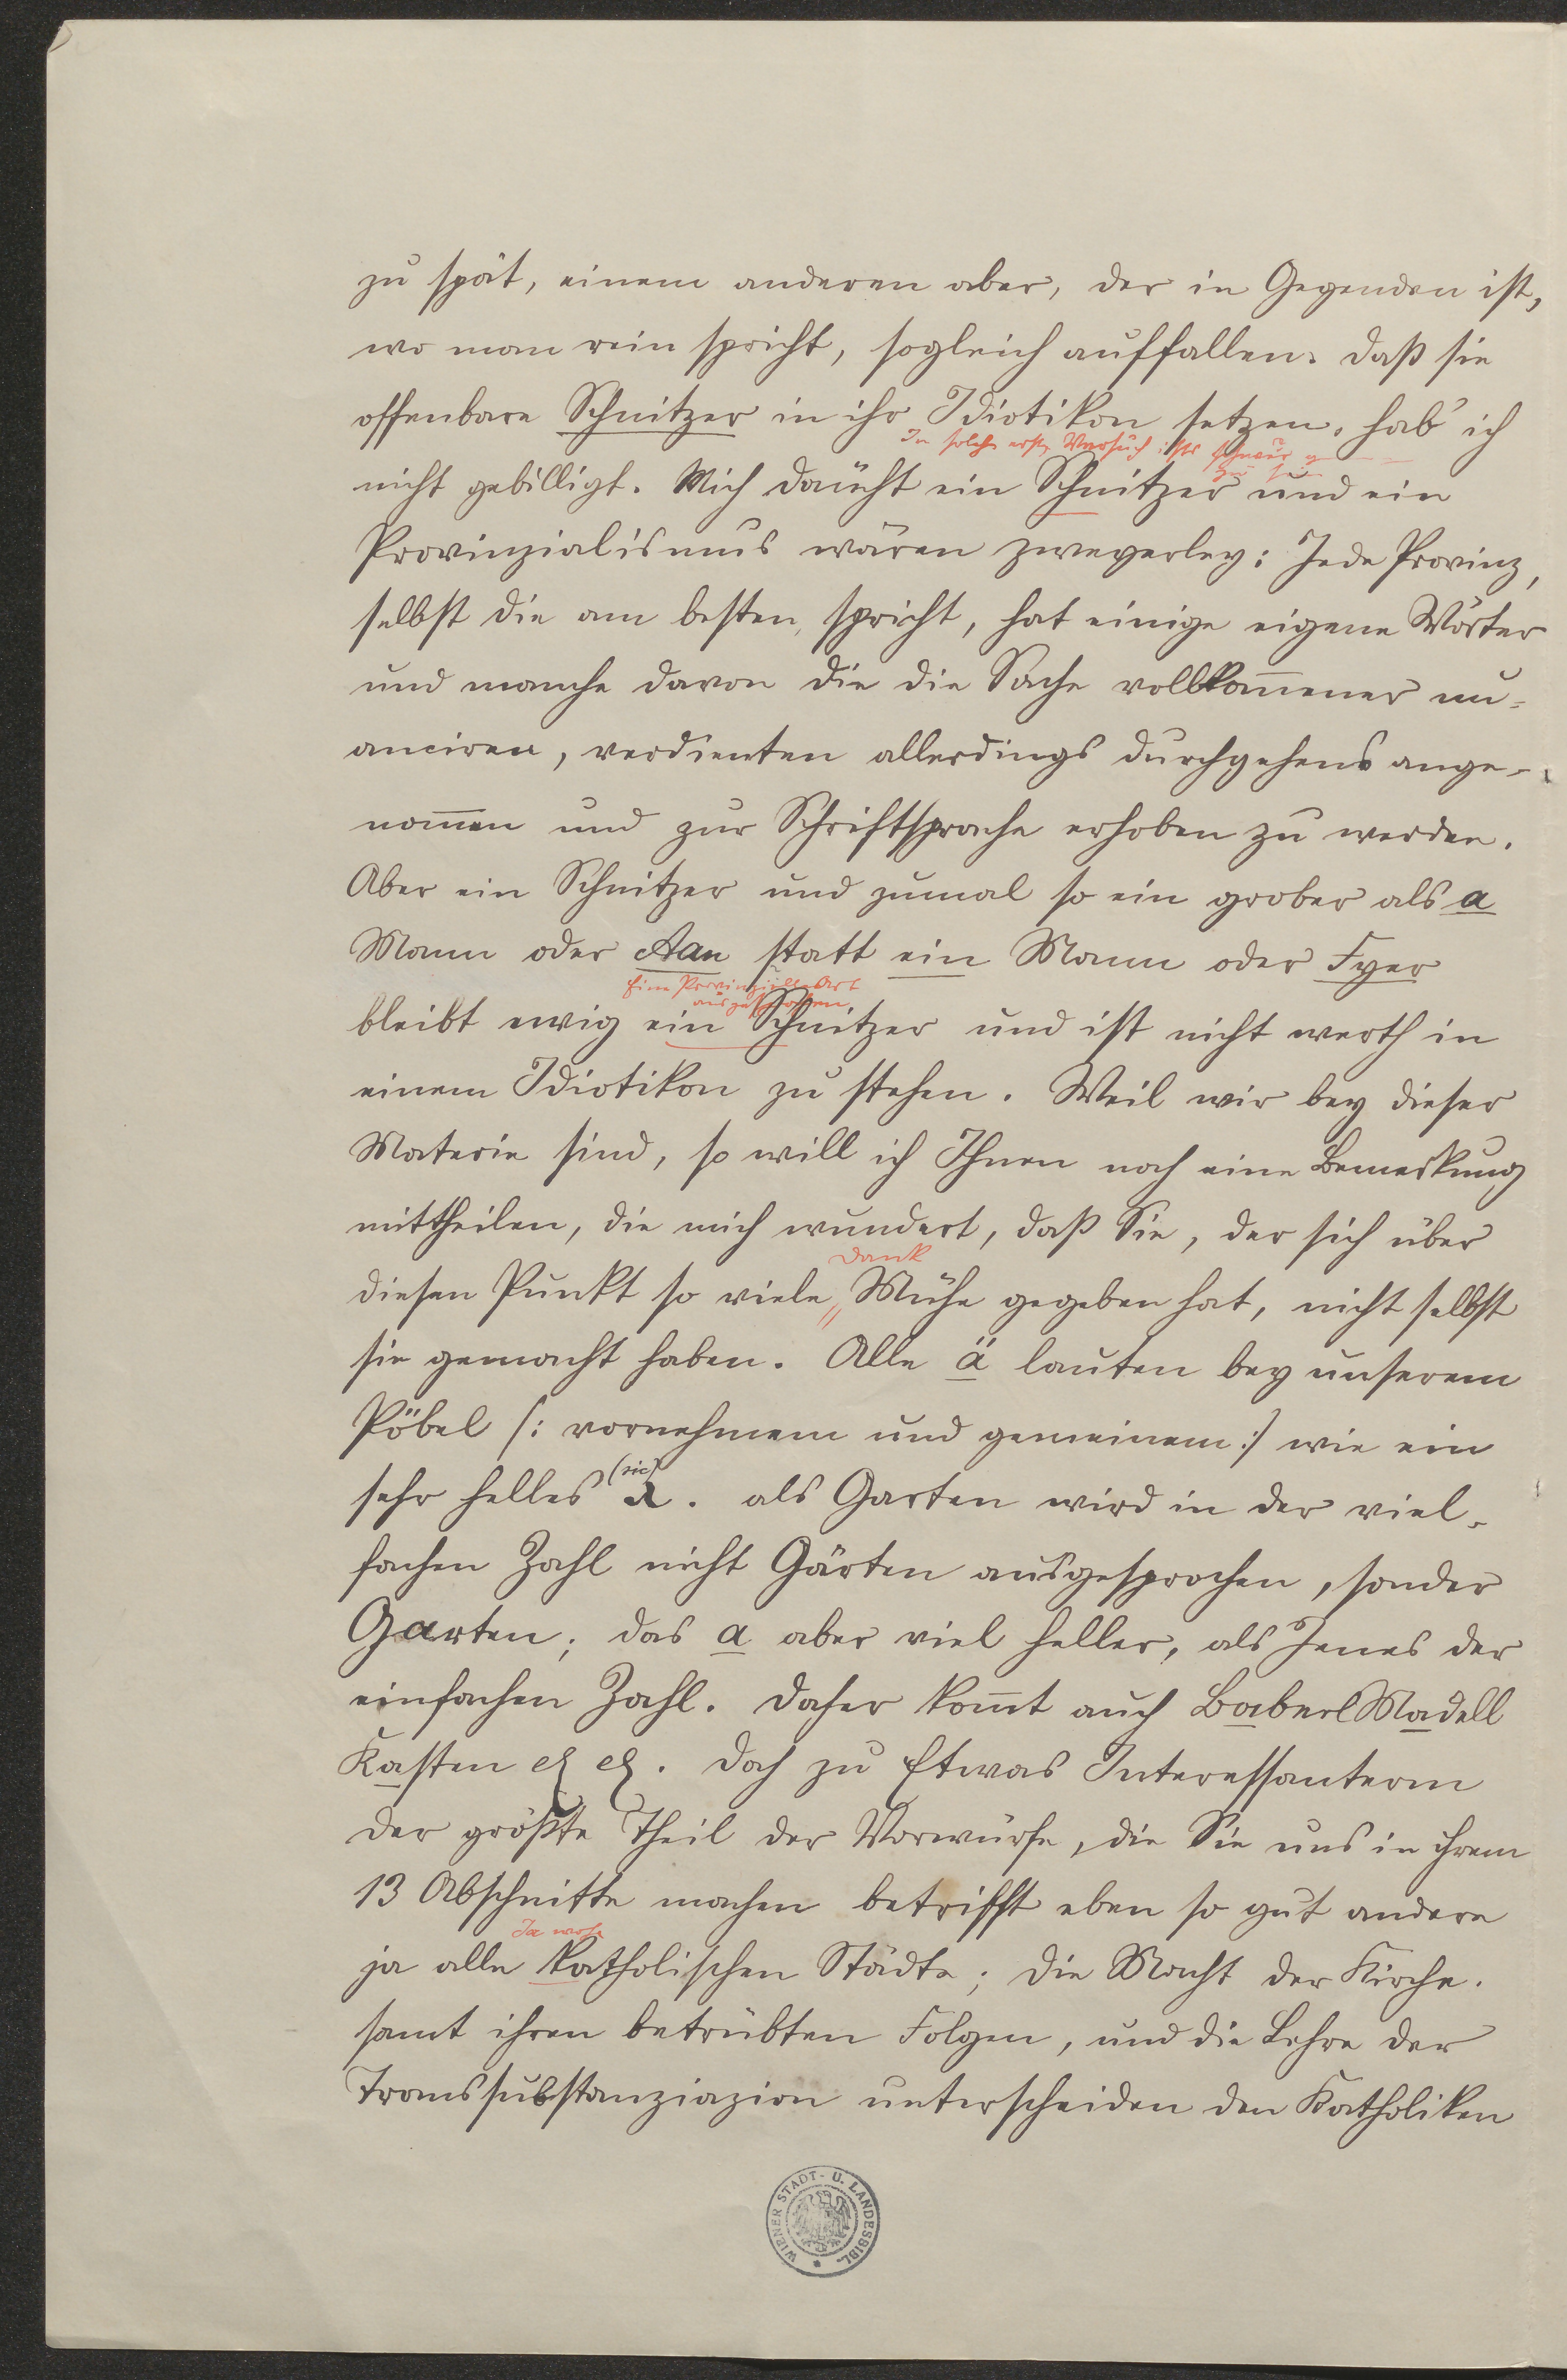 zu spät, einem anderen aber, der in Gegenden ist,
wo man rein spricht, sogleich auffallen. daß sie
offenbare Schnitzer in ihr Idiotikon setzen, hab' ich
In solch erst Versuch ists schwer
zu
nicht gebilligt. Mich däucht ein Schnitzer und ein
Provinzialismus wären zweyerley: Jede Provinz,
selbst die am besten spricht, hat einige eigene Wörter
und manche davon die die Sache vollkom̄ener nu=
anciren, verdienten allerdings durchgehens ange=
nom̄en und zur Schriftsprache erhoben zu werden.
Aber ein Schnitzer und zumal so ein grober als a
Mann oder Aan statt ein Mann oder Eyer
Eine Provinzielle Art
auszusprechen
bleibt ewig ein Schnitzer und ist nicht werth in
einem Idiotikon zu stehen. Weil wir bey dieser
Materie sind, so will ich Ihnen noch eine Bemerkung
mittheilen, die mich wundert, daß Sie, der sich über
Dank
diesen Punkt so viele Mühe gegeben hat, nicht selbst
sie gemacht haben. Alle ä lauten bey unserem
Pöbel /: vornehmem und gemeinem :/ wie ein
(sic)
sehr helles a. als Garten wird in der viel=
fachen Zahl nicht Gärten ausgesprochen, sonder
Garten; das a aber viel heller, als Jenes der
einfachen Zahl. daher kom̄t auch Baberl Madell
Kasten etc etc. doch zu Etwas Interessanterm
der größte Theil der Vorwürfe, die Sie uns in ihrem
13 Abschnitte machen betrifft eben so gut andere
Ja wohl
ja alle katholischen Städte; die Macht der Kirche.
samt ihren betrübten Folgen, und die Lehre der
Transsubstanziazion unterscheiden den Katholiken
WIENER STADT- U. LANDESBIBL.